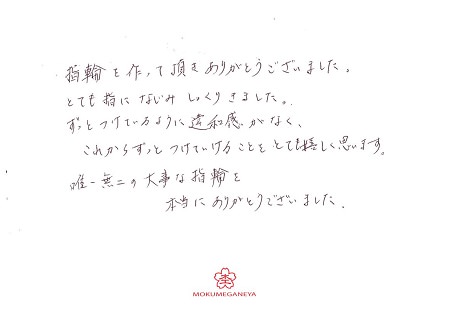 指輪を作って頂きありがとうございました。
とても指になじみしっくりきました。
ずっとつけているように違和感がなく、
これからずっとつけていけることをとても嬉しく思います。
唯一無二の大事な指輪を
本当にありがとうございました。
MOKUMEGANEYA